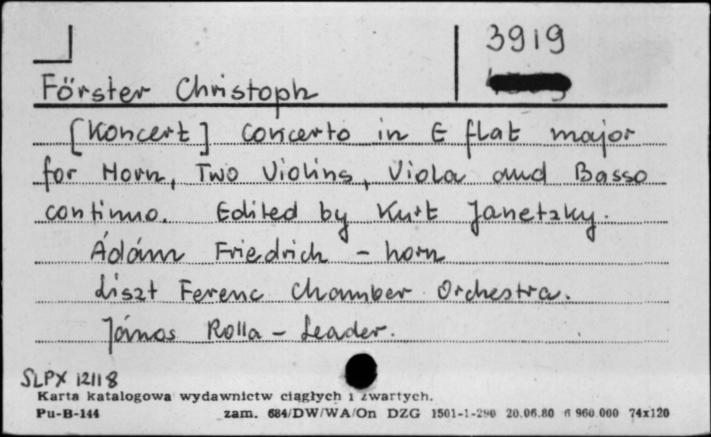 3919
Förster Christoph
[Koncert] Concerto in E flat major
for Horn, Two Violins, Viola and Basso
continuo. Edited by Kurt Janetzky.
Ádám Friedrich - horn
Liszt Ferenc Chamber Orchestra.
János Rolla - Leader.
SLPX 12118
Karta katalogowa wydawnictw ciągłych i zwartych.
Pu-B-144 zam. 684/DW/WA/On DZG 1501-1-290 20.06.80 6 960.000 74x120